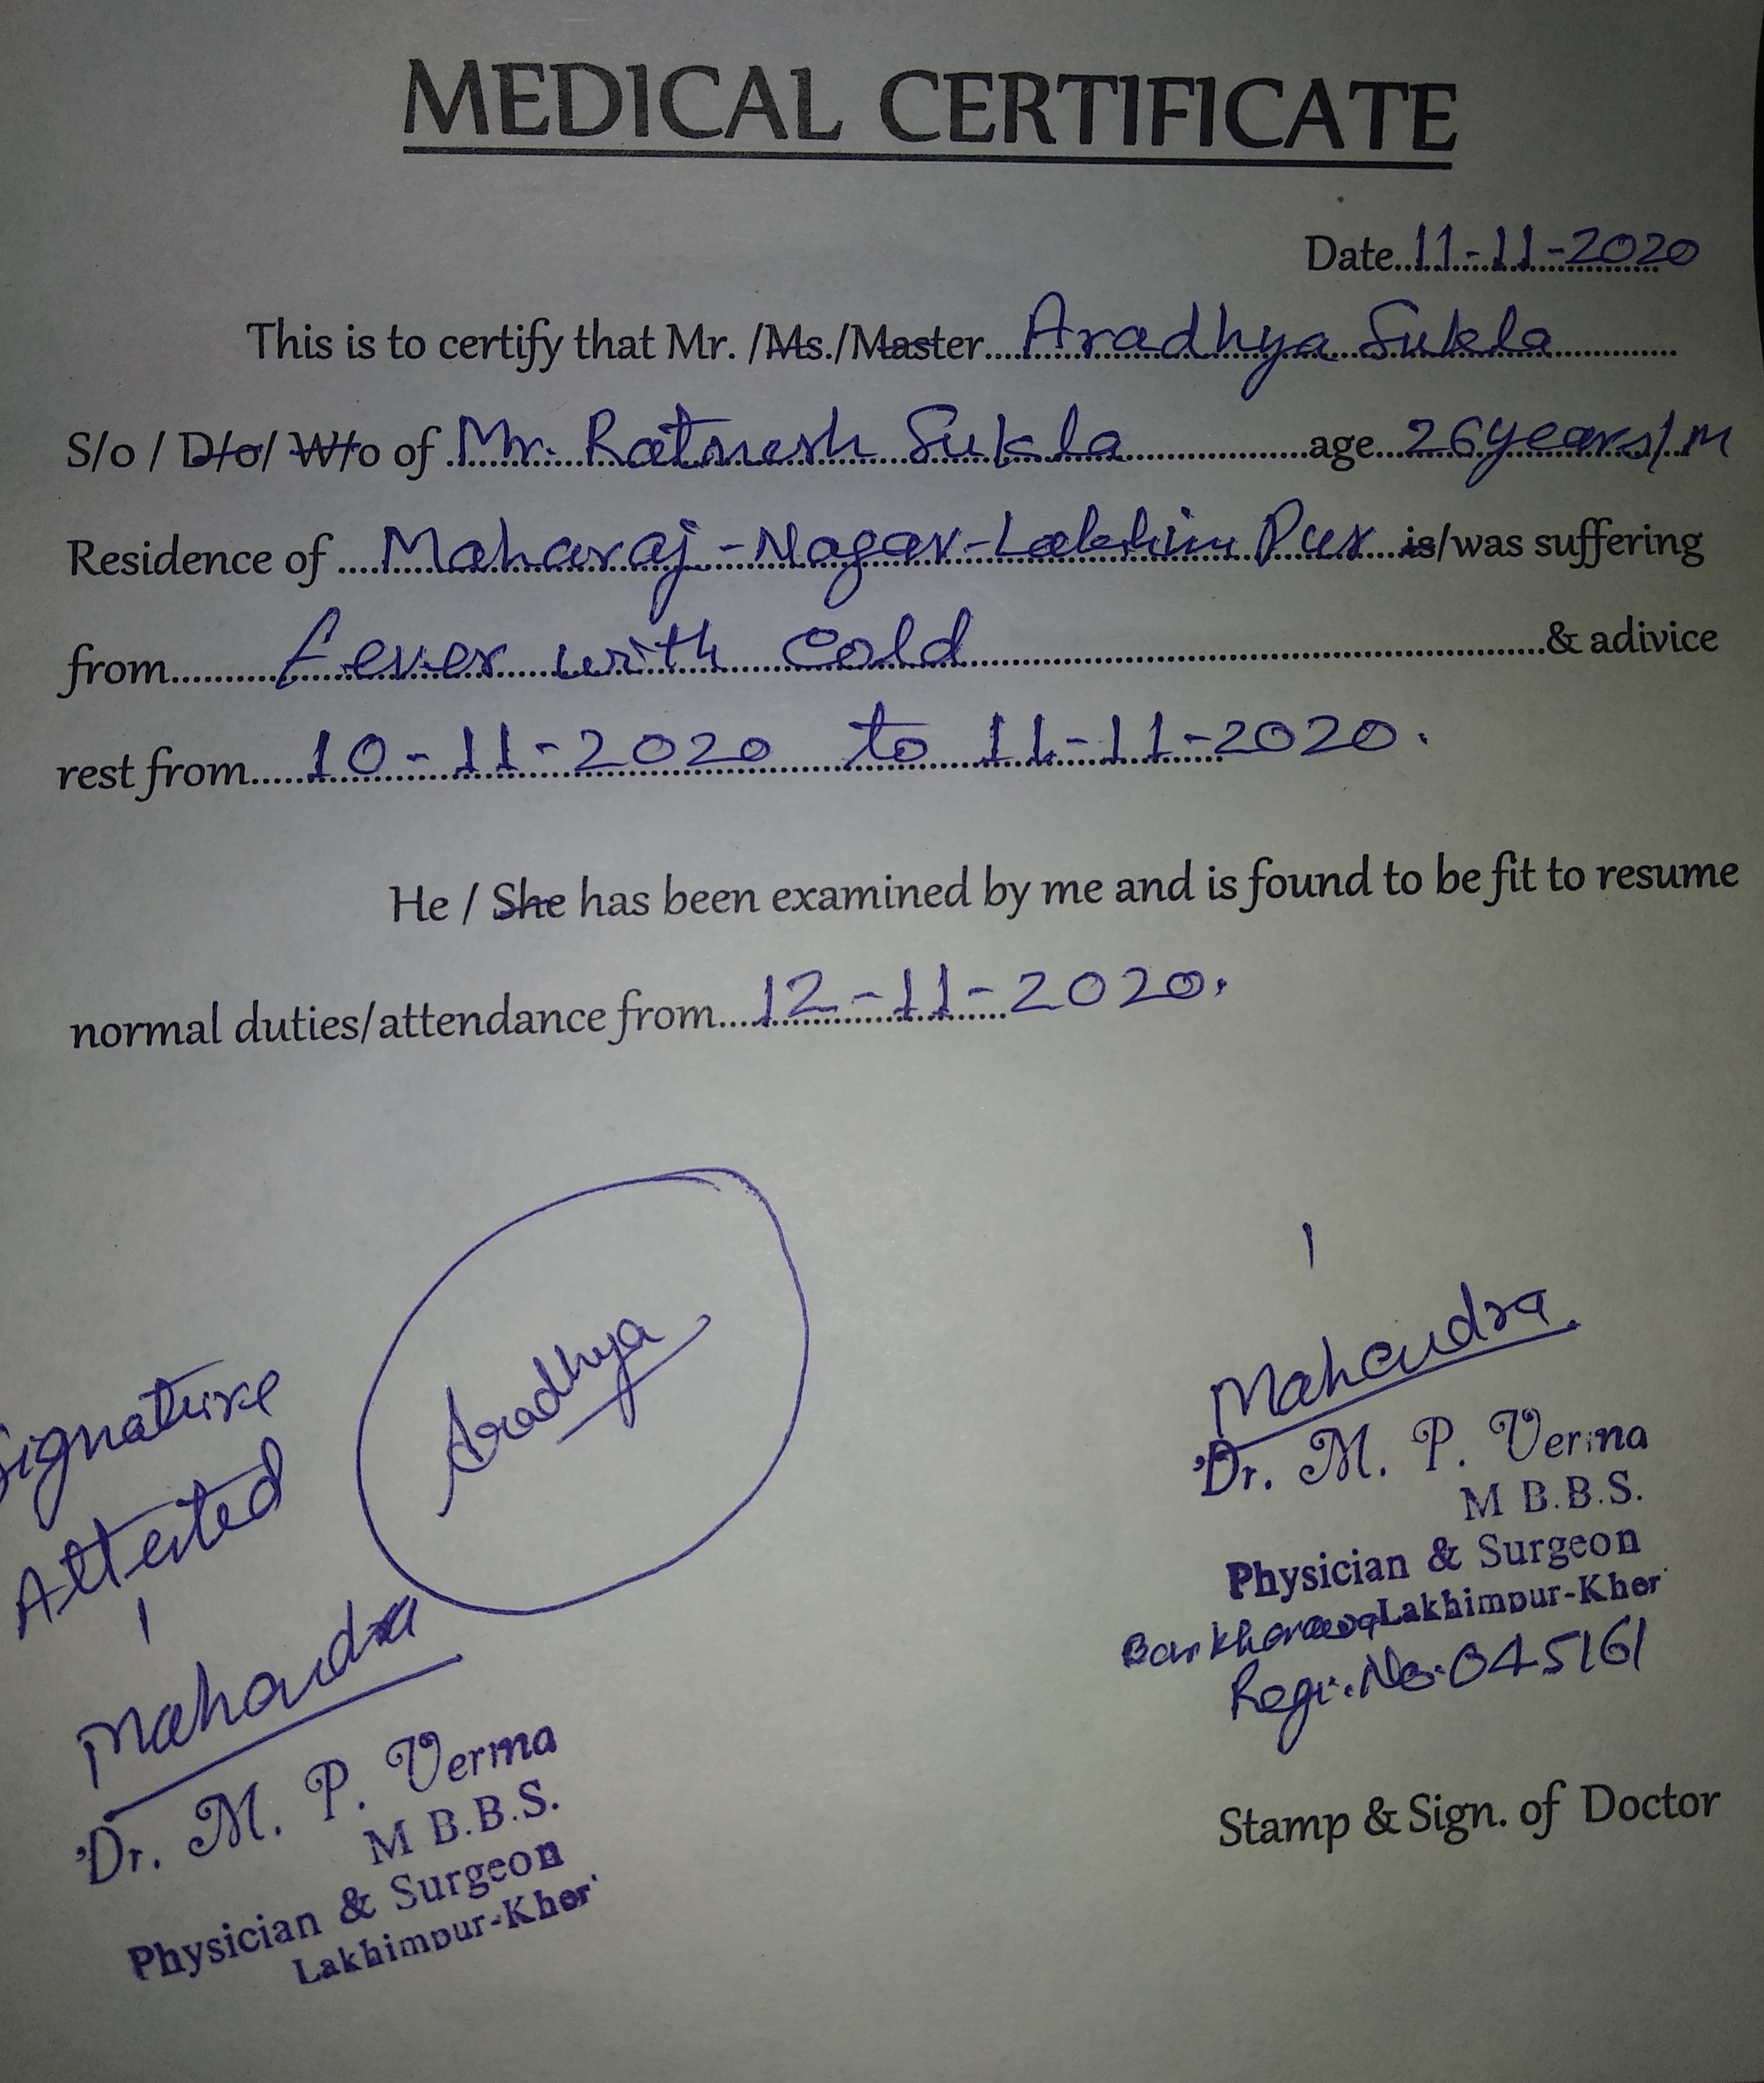 MEDICAL CERTIFICATE
Date..11-11-2020
This is to certify that Mr. /Ms./Master....Aradhya Sukla............
S/o / D/o/ W/o of Mr. Ratnesh Sukla................age...26years/M
Residence of ....Maharaj-Nagar-Lakhim Pur...is/was suffering
from..........fever with cold..............................& adivice
rest from.....10-11-2020 to 11-11-2020.
He / She has been examined by me and is found to be fit to resume
normal duties/attendance from....12-11-2020.
Signature
Attested
Aradhya
Mahendra
Dr. M. P. Verma
M B.B.S.
Physician & Surgeon
Lakhimpur-Kher
Mahendra
Dr. M. P. Verma
M B.B.S.
Physician & Surgeon
Lakhimpur-Kher
Regi. No. 045161
Stamp & Sign. of Doctor